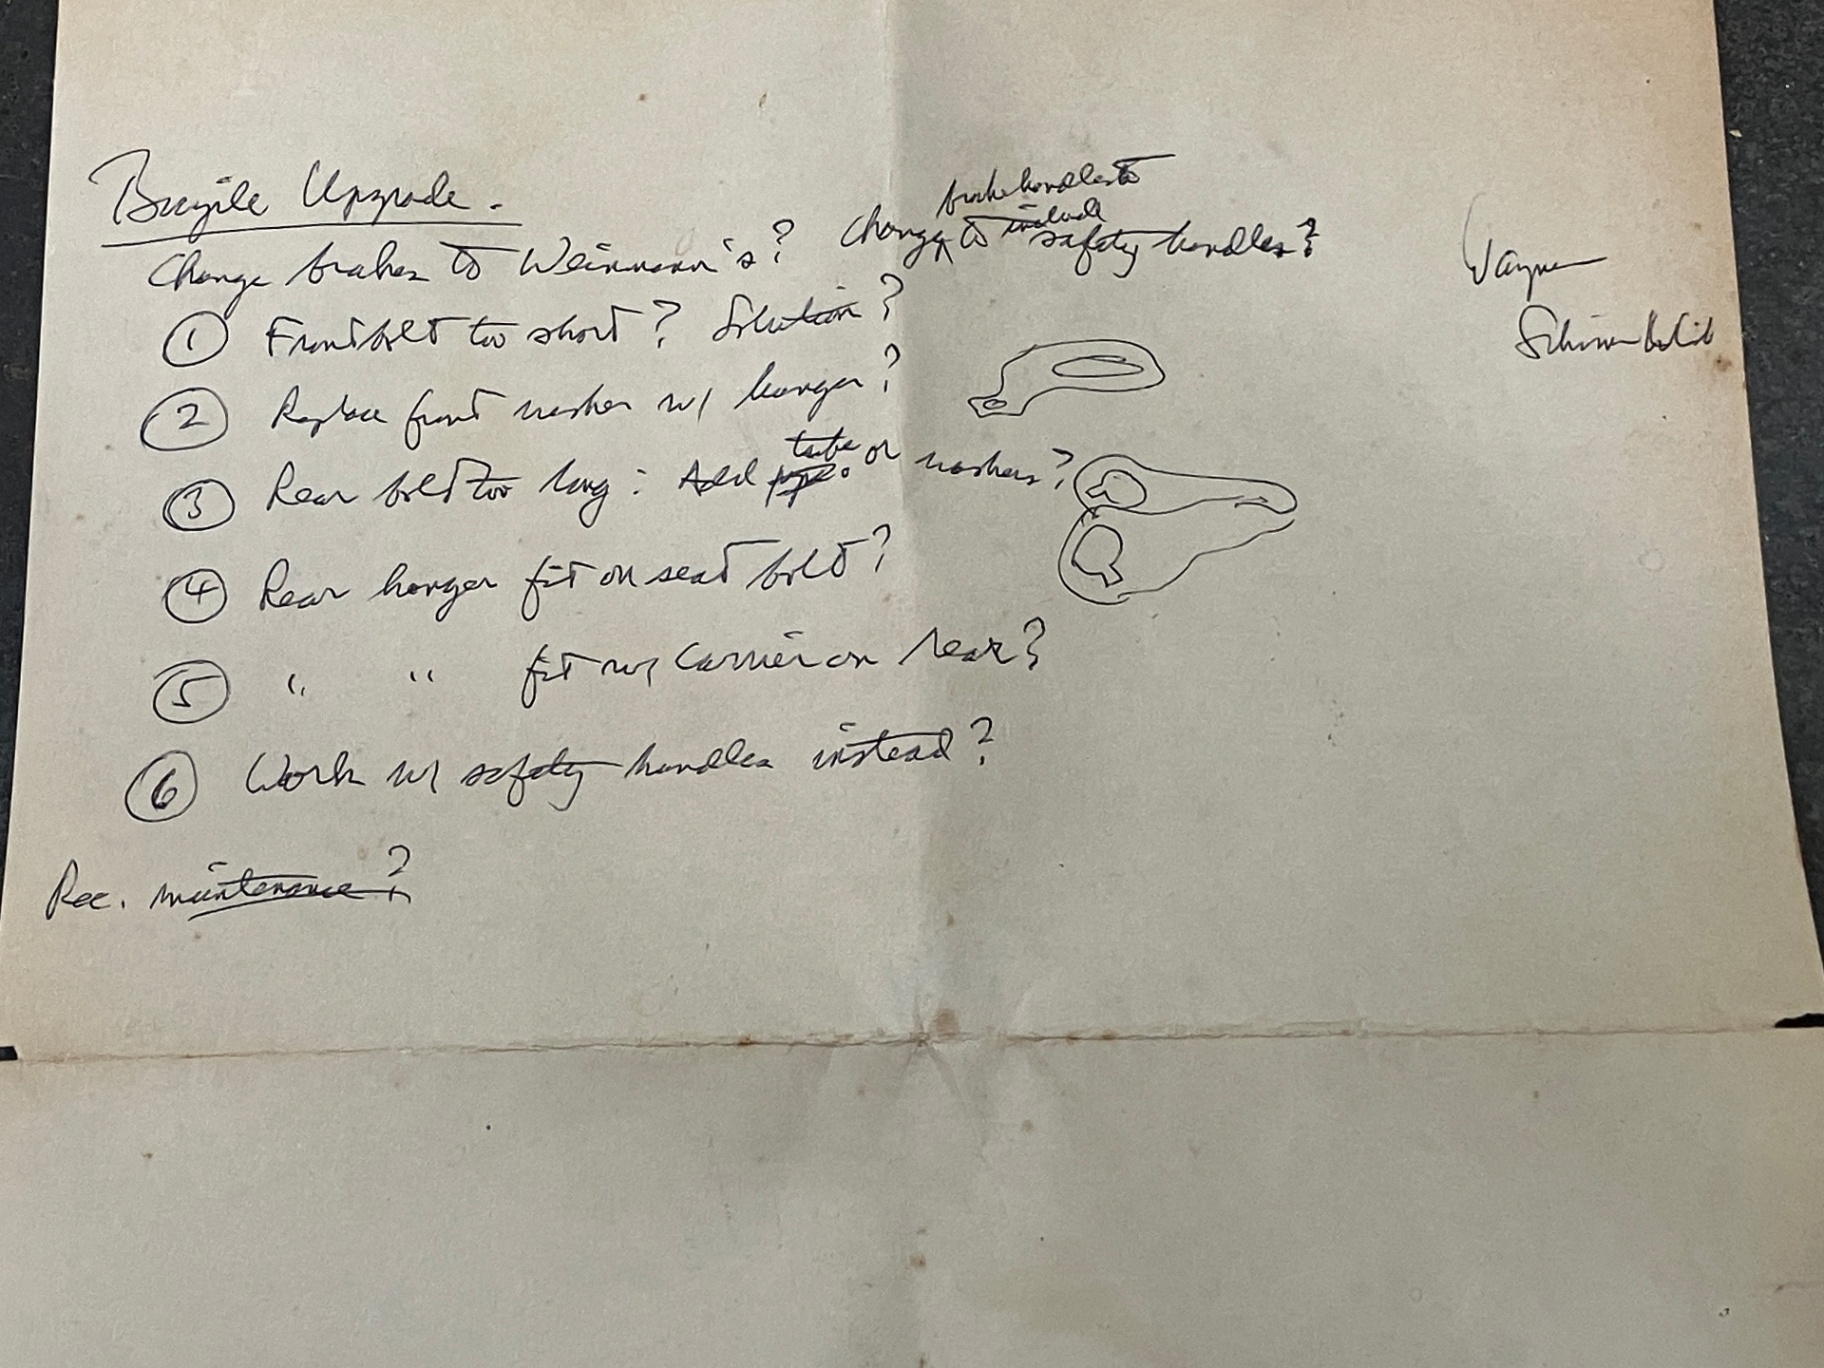 Bicycle Upgrade.
Change brakes to Weinmann's? Change brake handles to include safety handles?
① Front bolt too short? Solution?
② Replace front washer w/ hanger?
③ Rear bolt too long: Add tube or washers?
④ Rear hanger fit on seat bolt?
⑤ " " fit w/ carrier on rear?
⑥ Work w/ safety handles instead?
Rec. maintenance?
Wayne